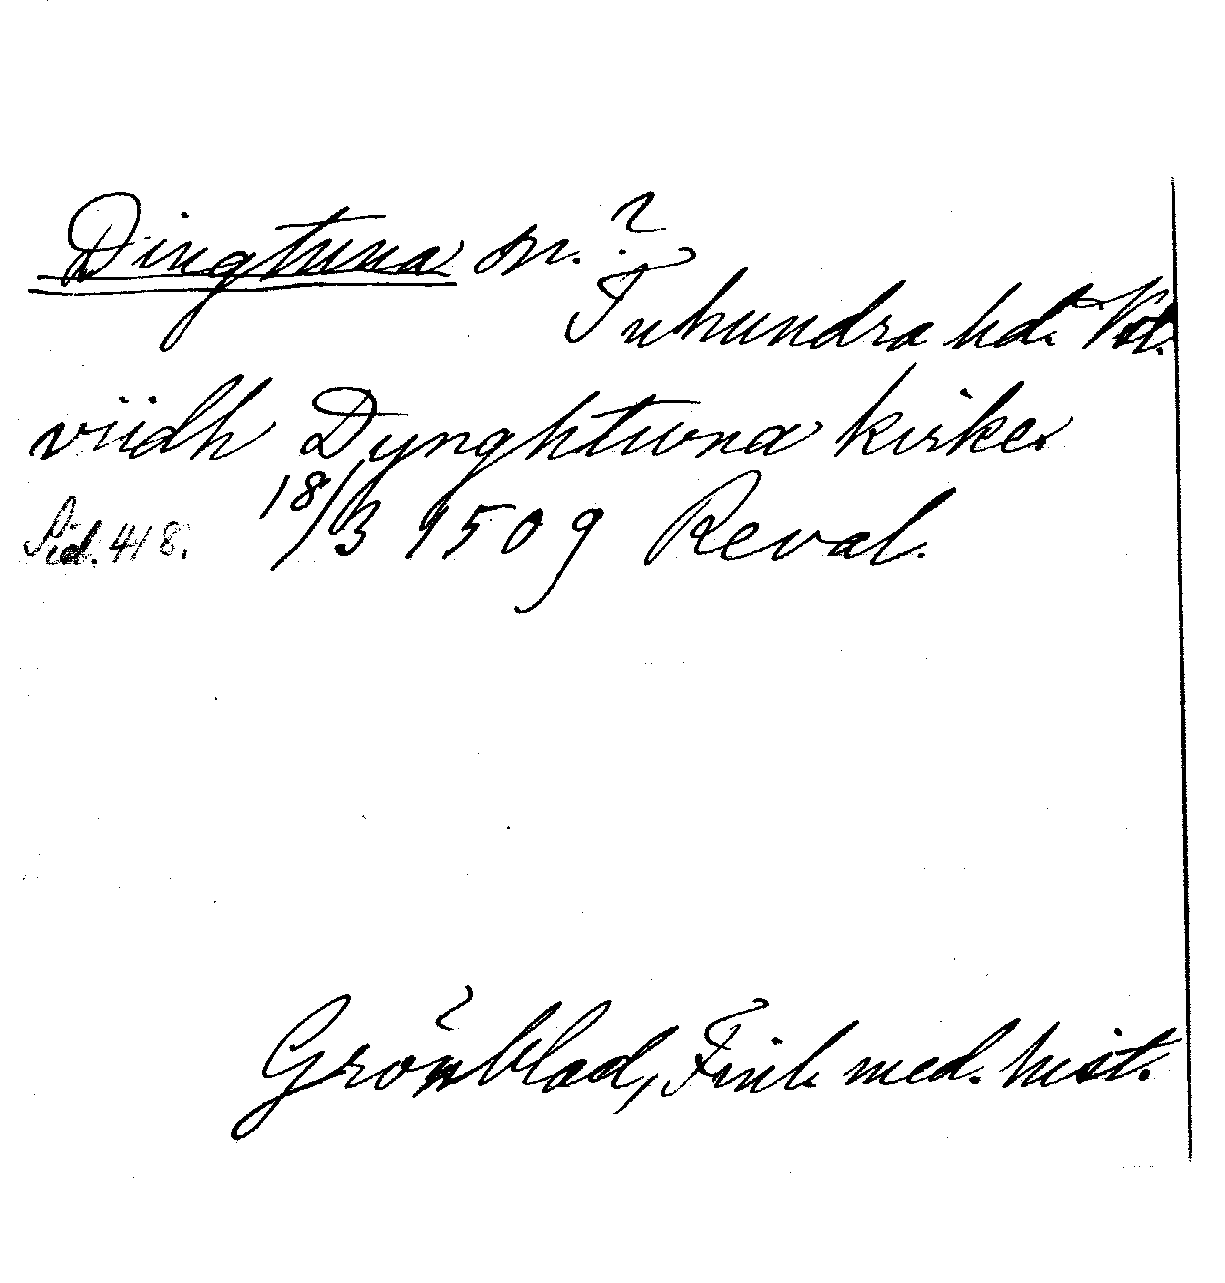 Dingtuna sn. ?
Tuhundra hd. Vstm.
viidh Dynghtuna kirke
Sid. 418. 18/3 1509 Reval.
Grönblad, Finl. med. hist.